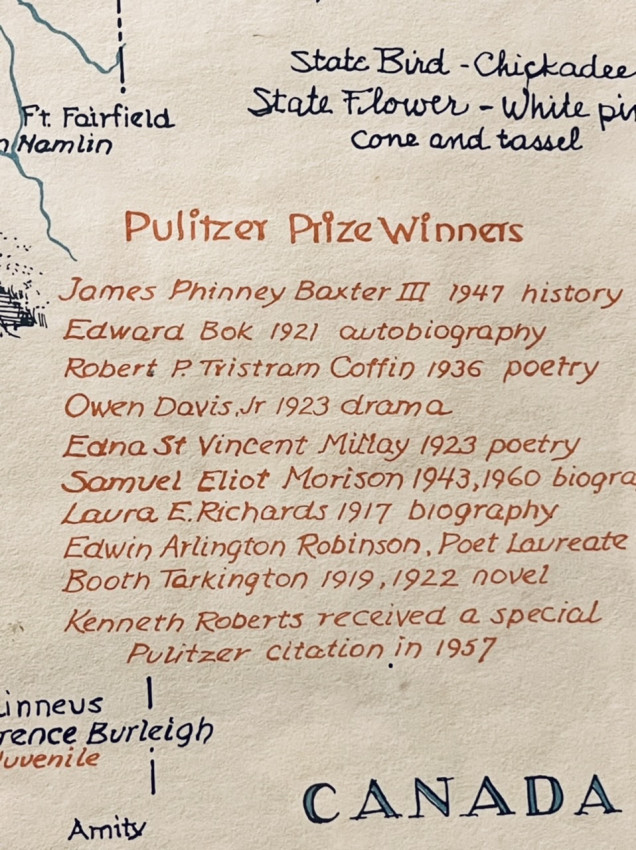 State Bird - Chickadee
State Flower - White pin
Cone and tassel
Ft. Fairfield
n Hamlin
Pulitzer Prize Winners
James Phinney Baxter III 1947 history
Edward Bok 1921 autobiography
Robert P. Tristram Coffin 1936 poetry
Owen Davis, Jr 1923 drama
Edna St Vincent Millay 1923 poetry
Samuel Eliot Morison 1943, 1960 biogra
Laura E. Richards 1917 biography
Edwin Arlington Robinson, Poet Laureate
Booth Tarkington 1919, 1922 novel
Kenneth Roberts received a special
Pulitzer citation in 1957
Linneus
rence Burleigh
Juvenile
Amity
CANADA